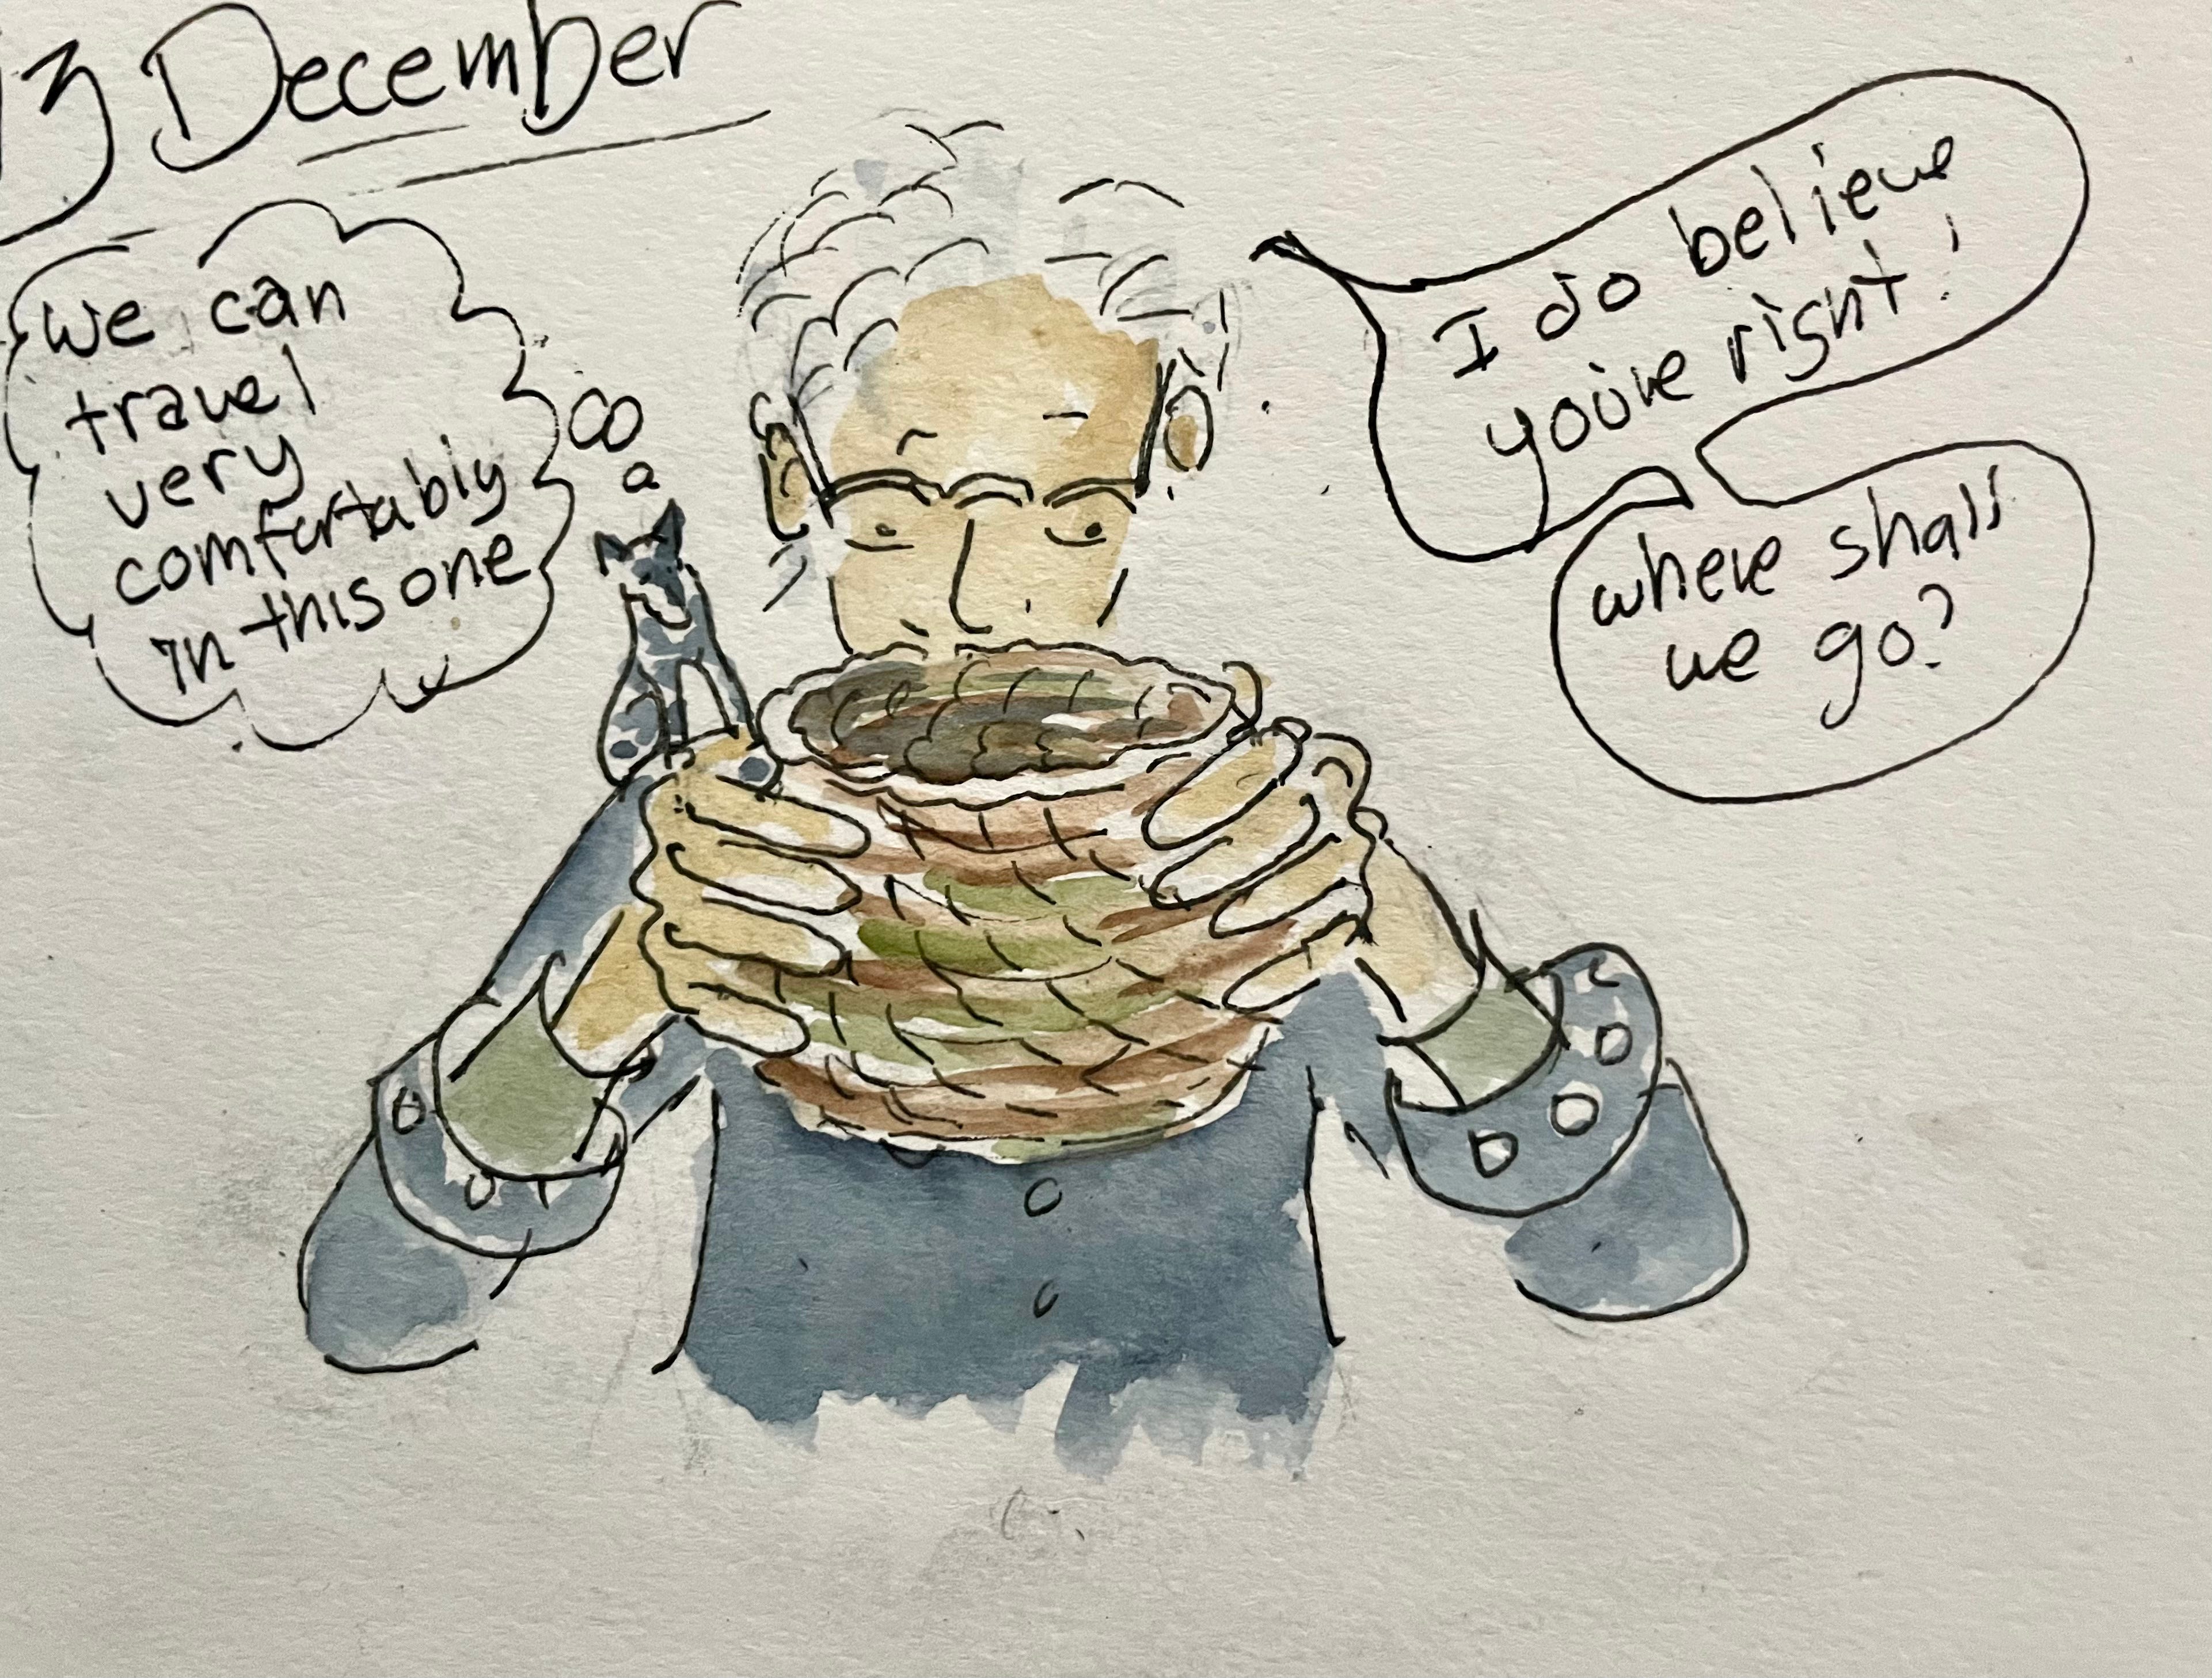 3 December
we can
travel
very
comfortably
in this one
I do believe
you're right!
where shall
we go?